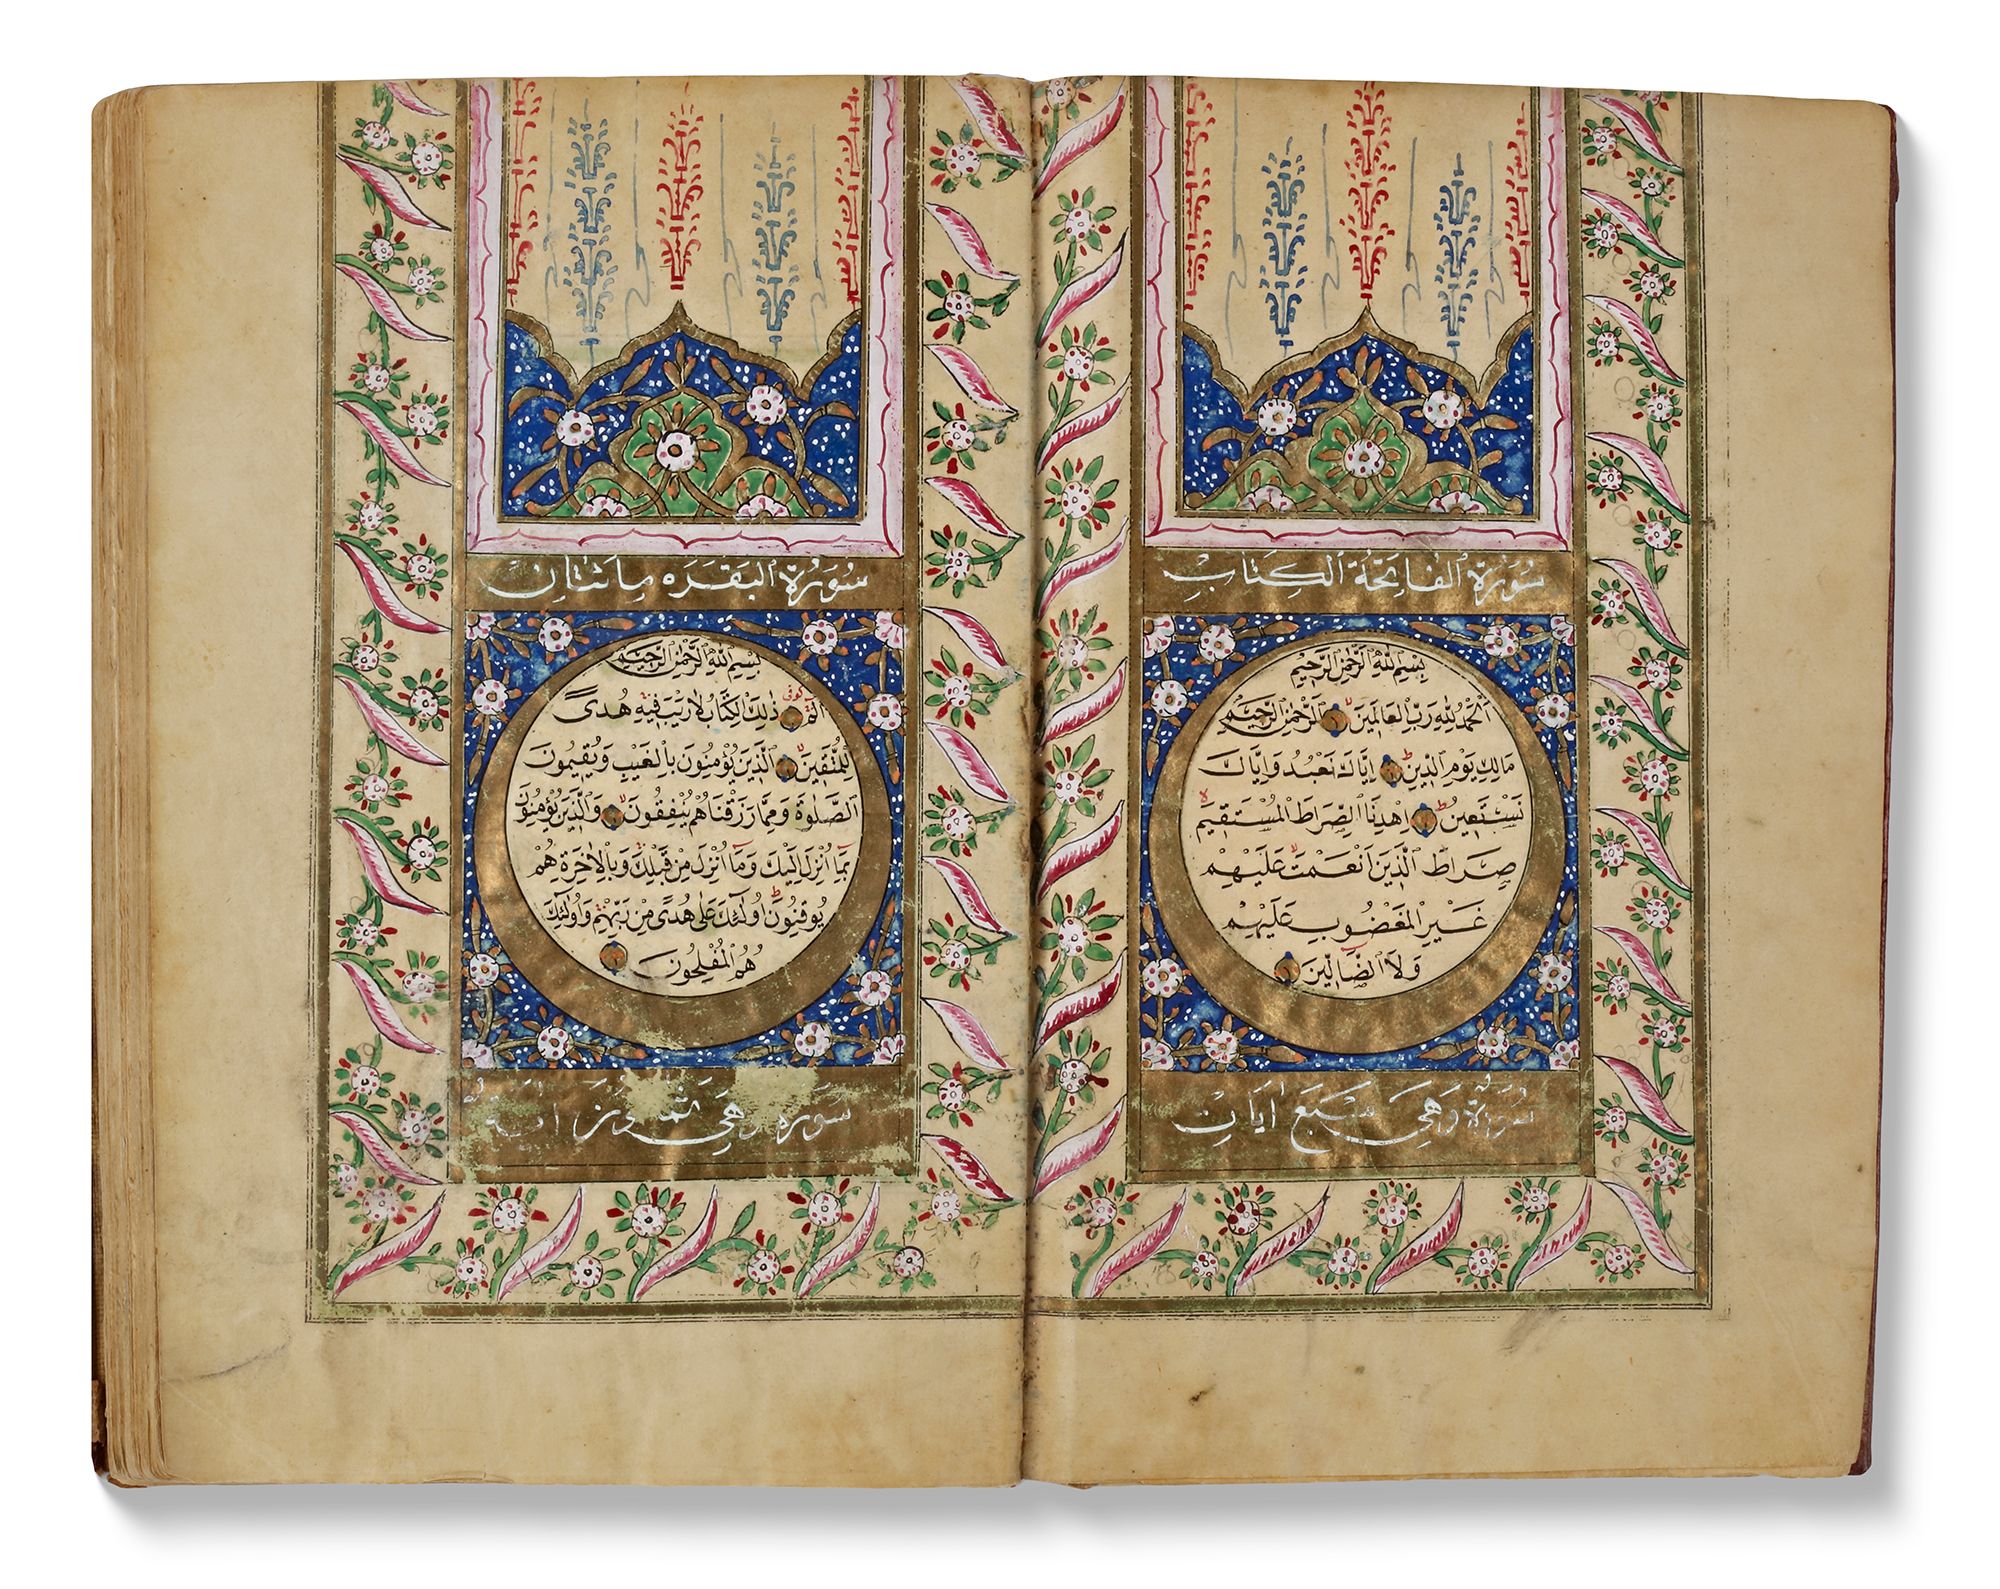 سُورَةُ الفَاتِحَةِ الكِتَابِ
بِسْمِ اللهِ الرَّحْمٰنِ الرَّحِيمِ
اَلْحَمْدُ لِلّٰهِ رَبِّ العَالَمِينَ الرَّحْمٰنِ الرَّحِيمِ
مَالِكِ يَوْمِ الدِّينِ اِيَّاكَ نَعْبُدُ وَاِيَّاكَ
نَسْتَعِينُ اِهْدِنَا الصِّرَاطَ المُسْتَقِيمَ
صِرَاطَ الَّذِينَ اَنْعَمْتَ عَلَيْهِمْ
غَيْرِ المَغْضُوبِ عَلَيْهِمْ
وَلَا الضَّالِّينَ
سُورَةُ وَهِيَ سَبْعَ اٰيَاتٍ
سُورَةُ البَقَرَه مِائَتَانِ
بِسْمِ اللهِ الرَّحْمٰنِ الرَّحِيمِ
كوفى
الٓمٓ ذٰلِكَ الكِتَابُ لَا رَيْبَ فِيهِ هُدًى
لِلْمُتَّقِينَ الَّذِينَ يُؤْمِنُونَ بِالغَيْبِ وَيُقِيمُونَ
الصَّلٰوةَ وَمِمَّا رَزَقْنَاهُمْ يُنْفِقُونَ وَالَّذِينَ يُؤْمِنُونَ
بِمَٓا اُنْزِلَ اِلَيْكَ وَمَٓا اُنْزِلَ مِنْ قَبْلِكَ وَبِالْاٰخِرَةِ هُمْ
يُوقِنُونَ اُولٰٓئِكَ عَلٰى هُدًى مِنْ رَبِّهِمْ وَاُولٰٓئِكَ
هُمُ المُفْلِحُونَ
سُورَه وَهِيَ اٰيَةُ